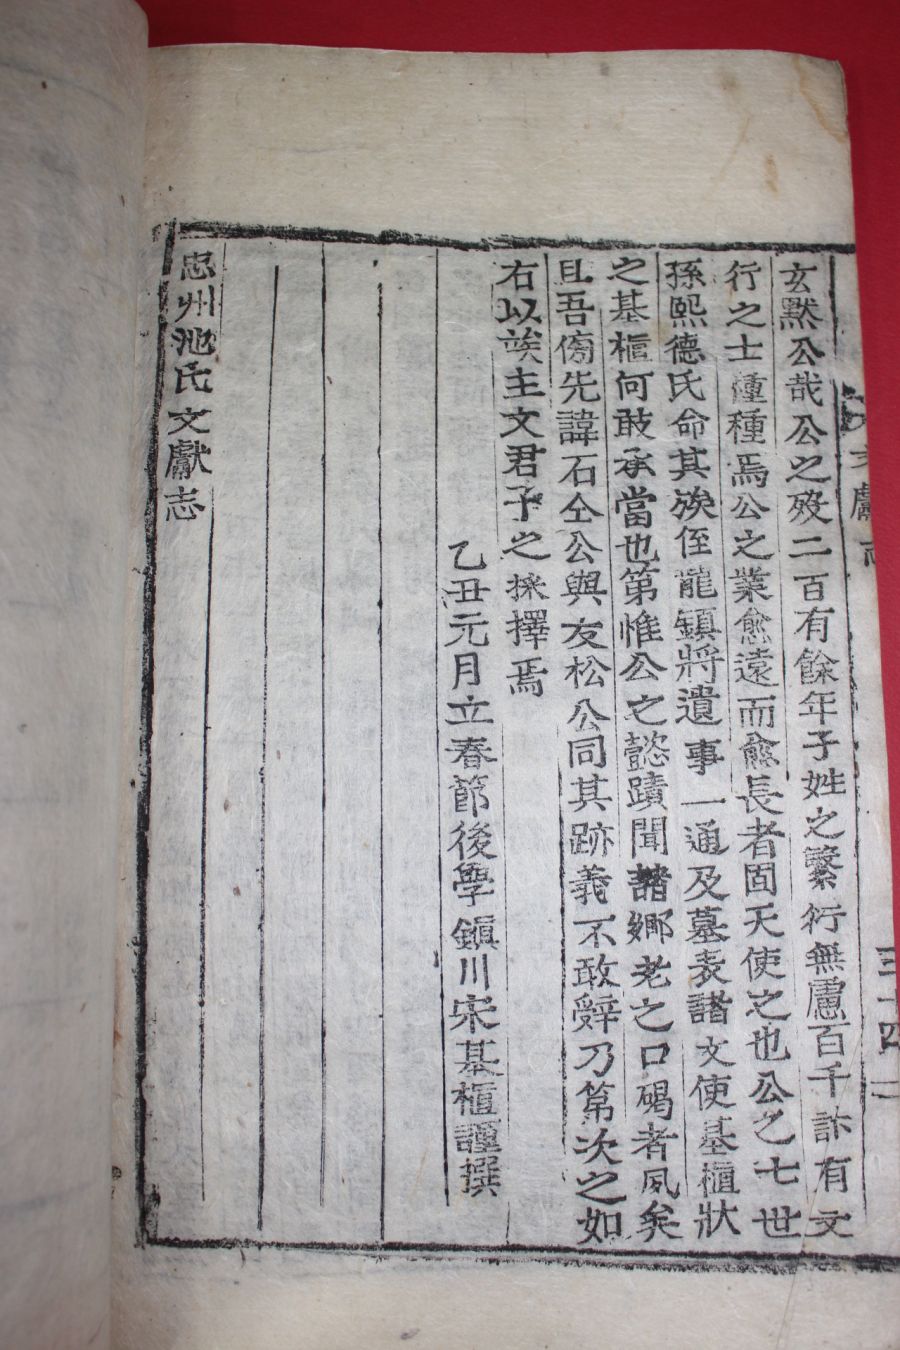 文獻志
三十四
玄黙公哉公之歿二百有餘年子姓之繁衍無慮百千計有文
行之士種種焉公之業愈遠而愈長者固天使之也公之七世
孫熙德氏命其族侄龍鎮將遺事一通及墓表諸文使基樞狀
之基樞何敢承當也第惟公之懿蹟聞諸鄉老之口碣者夙矣
且吾傍先諱石仝公與友松公同其跡義不敢辭乃第次之如
右以竢主文君子之採擇焉
乙丑元月立春節後學鎭川宋基樞謹撰
忠州池氏文獻志